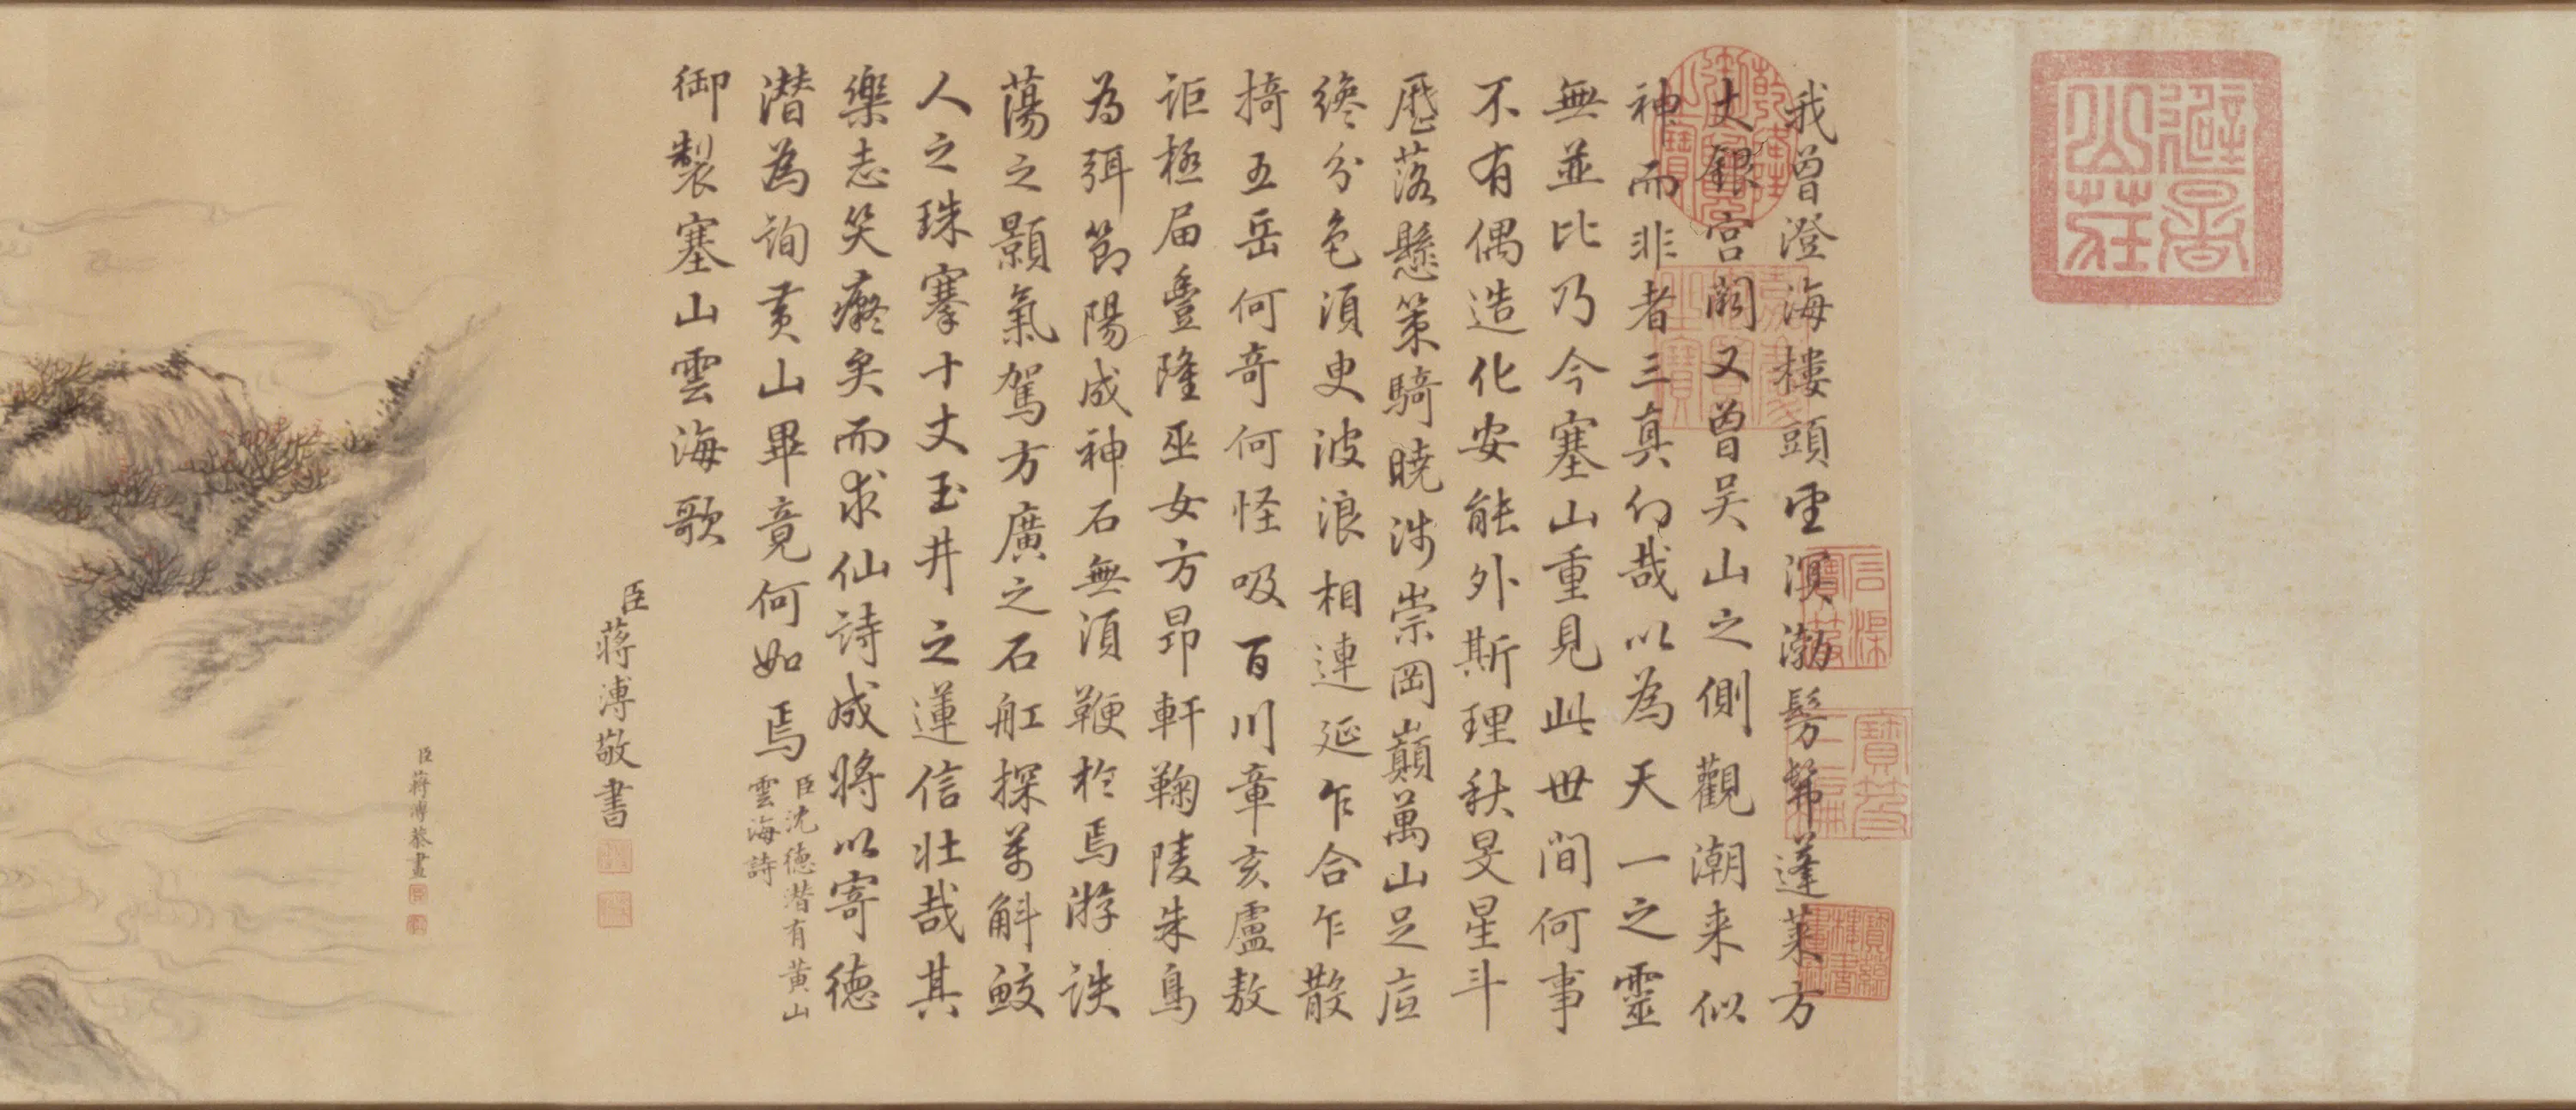 避暑山莊
我曾澄海樓頭望溟渤髣髴蓬萊方
丈銀宮闕又曾吳山之側觀潮来似
神而非者三真幻哉以為天一之靈
無並比乃今塞山重見此世間何事
不有偶造化安能外斯理秋旻星斗
歷落懸策騎曉涉崇岡巔萬山足底
纔分色須臾波浪相連延乍合乍散
掎五岳何奇何怪吸百川章亥盧敖
詎極屆豐隆巫女方昂軒鞠陵朱鳥
為弭節陽成神石無須鞭於焉游泆
蕩之顥氣駕方廣之石舡探萬斛鮫
人之珠搴十丈玉井之蓮信壯哉其
樂志笑癡矣而求仙詩成將以寄德
潛為詢黃山畢竟何如焉
臣沈德潛有黃山
雲海詩
御製塞山雲海歌
臣蔣溥敬書
臣蔣溥恭畫